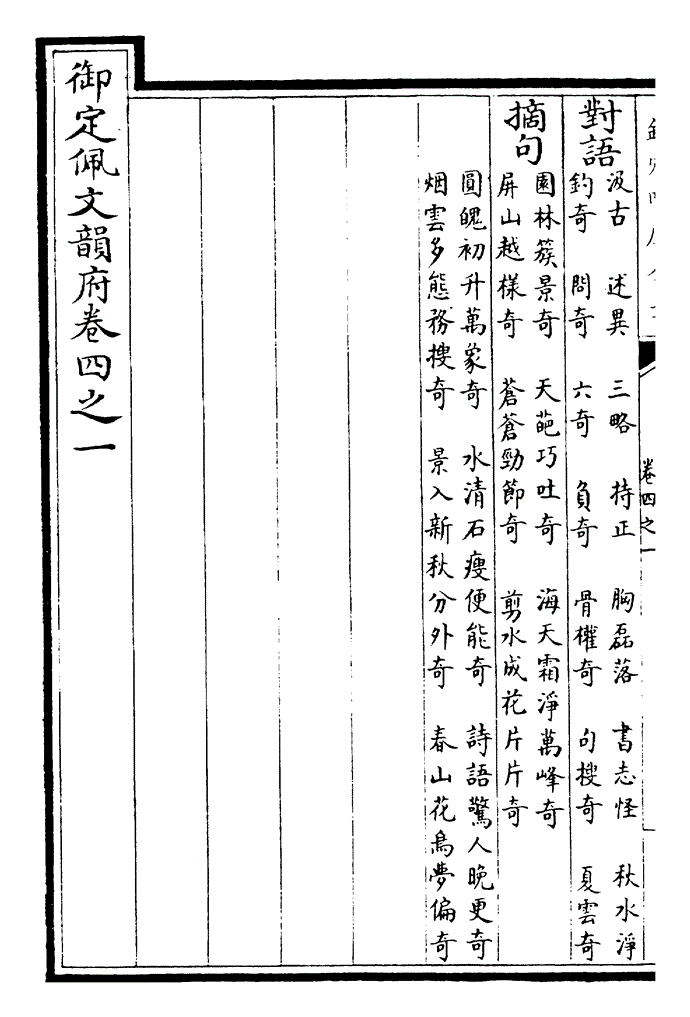 卷四之一
對語
汲古 述異 三略 持正 胸磊落 書志怪 秋水淨
釣奇 問奇 六奇 負奇 骨權奇 句搜奇 夏雲奇
摘句
園林簇景奇 天葩巧吐奇 海天霜淨萬峰奇
屏山越樣奇 蒼蒼勁節奇 剪水成花片片奇
圓魄初升萬象奇 水清石瘦便能奇 詩語驚人晚更奇
烟雲多態務搜奇 景入新秋分外奇 春山花鳥夢偏奇
御定佩文韻府卷四之一